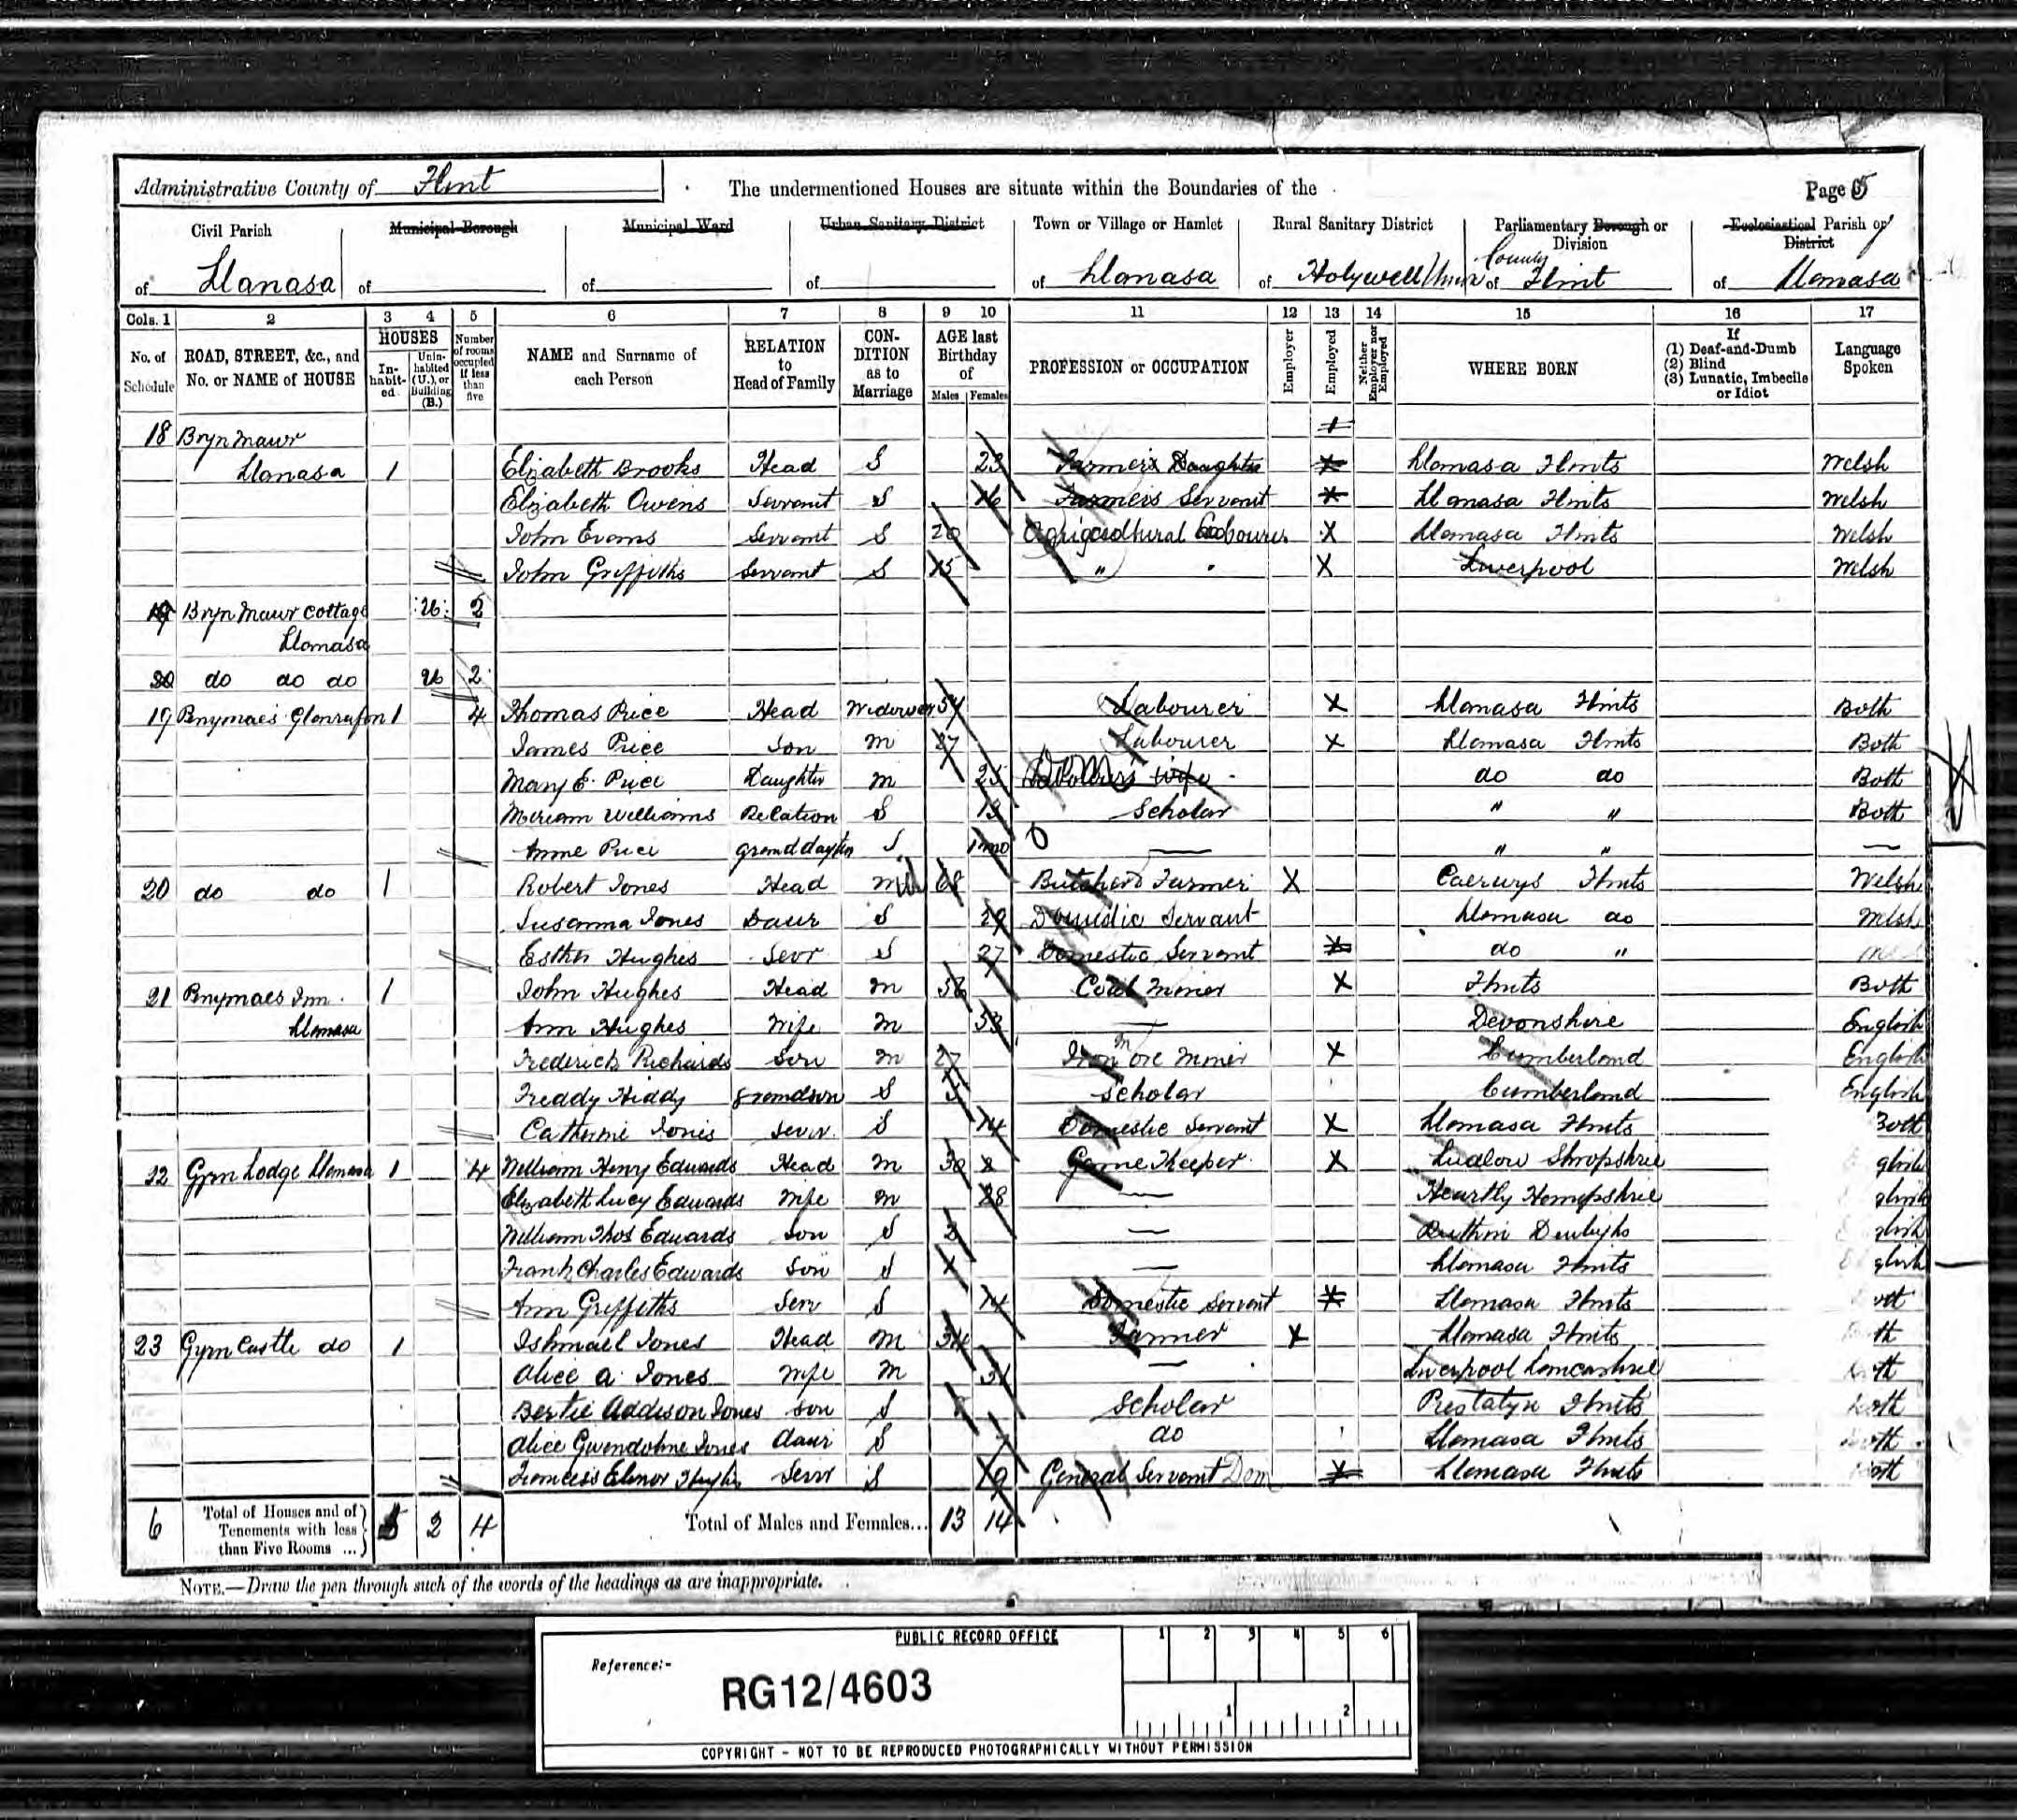 Administrative County of Flint
The undermentioned Houses are situate within the Boundaries of the
Page 5
Civil Parish of Llanasa
Municipal Borough of
Municipal Ward of
Urban Sanitary District of
Town or Village or Hamlet of Llanasa
Rural Sanitary District of Holywell Union
Parliamentary Borough or Division of County Flint
Ecclesiastical Parish or District of Llanasa
Cols. 1 2 3 4 5 6 7 8 9 10 11 12 13 14 15 16 17
No. of Schedule
ROAD, STREET, &c., and No. or NAME of HOUSE
HOUSES
In-habit-ed
Unin-habited (U.), or Building (B.)
Number of rooms occupied if less than five
NAME and Surname of each Person
RELATION to Head of Family
CON-DITION as to Marriage
AGE last Birthday of
Males Females
PROFESSION or OCCUPATION
Employer
Employed
Neither Employer nor Employed
WHERE BORN
If (1) Deaf-and-Dumb (2) Blind (3) Lunatic, Imbecile or Idiot
Language Spoken
18 Bryn Mawr
Llanasa 1 Elizabeth Brooks Head S 23 Farmer's Daughter X Llanasa Flints Welsh
Elizabeth Owens Servant S 16 Farmers Servant X Llanasa Flints Welsh
John Evans Servant S 20 Agricultural Labourer X Llanasa Flints Welsh
John Griffiths Servant S 15 " " X Liverpool Welsh
19 Bryn Mawr Cottage U 2
Llanasa
20 do do do U 2
19 Brynmaes Glanrafon 1 4 Thomas Price Head Widower 54 Labourer X Llanasa Flints Both
James Price Son M 27 Labourer X Llanasa Flints Both
Mary E. Price Daughter M 25 Labourer's Wife do do Both
Miriam Williams Relation S 13 Scholar " " Both
Anne Price Granddaughter S 1 mo — " " —
20 do do 1 Robert Jones Head 68 Farmer X Caerwys Flints Welsh
Susanna Jones Daur S 29 Domestic Servant Llanasa do Welsh
Esther Hughes Serv S 27 Domestic Servant X do "
21 Brynmaes Inn 1 John Hughes Head M Coal Miner X Flints Both
Llanasa Ann Hughes Wife M 53 — Devonshire English
Frederick Richards Son M 27 Iron Ore Miner X Cumberland English
Freddy Hiddy Grandson S 5 Scholar Cumberland English
Catherine Jones Serv. S 14 Domestic Servant X Llanasa Flints Both
22 Gyrn Lodge Llanasa 1 4 William Henry Edwards Head M 30 Game Keeper X Ludlow Shropshire glish
Elizabeth Lucy Edwards Wife M 28 — Hampshire glish
William Thos Edwards Son S 2 — Ruthin Denbighs glish
Frank Charles Edwards Son S — Llanasa Flints glish
Ann Griffiths Serv S 14 Domestic Servant X Llanasa Flints
23 Gyrn Castle do 1 Ishmael Jones Head M 34 Farmer X Llanasa Flints th
Alice A. Jones Wife M 31 — Liverpool Lancashire th
Bertie Addison Jones Son S Scholar Prestatyn Flints oth
Alice Gwendoline Jones Daur S 7 do Llanasa Flints oth
Frances Elinor Hughes Serv S 19 General Servant Dom X Llanasa Flints oth
6 Total of Houses and of Tenements with less than Five Rooms ... 5 2 4 Total of Males and Females... 13 14
NOTE.—Draw the pen through such of the words of the headings as are inappropriate.
PUBLIC RECORD OFFICE
1 2 3 4 5 6
Reference:-
RG12/4603
1 2
COPYRIGHT - NOT TO BE REPRODUCED PHOTOGRAPHICALLY WITHOUT PERMISSION